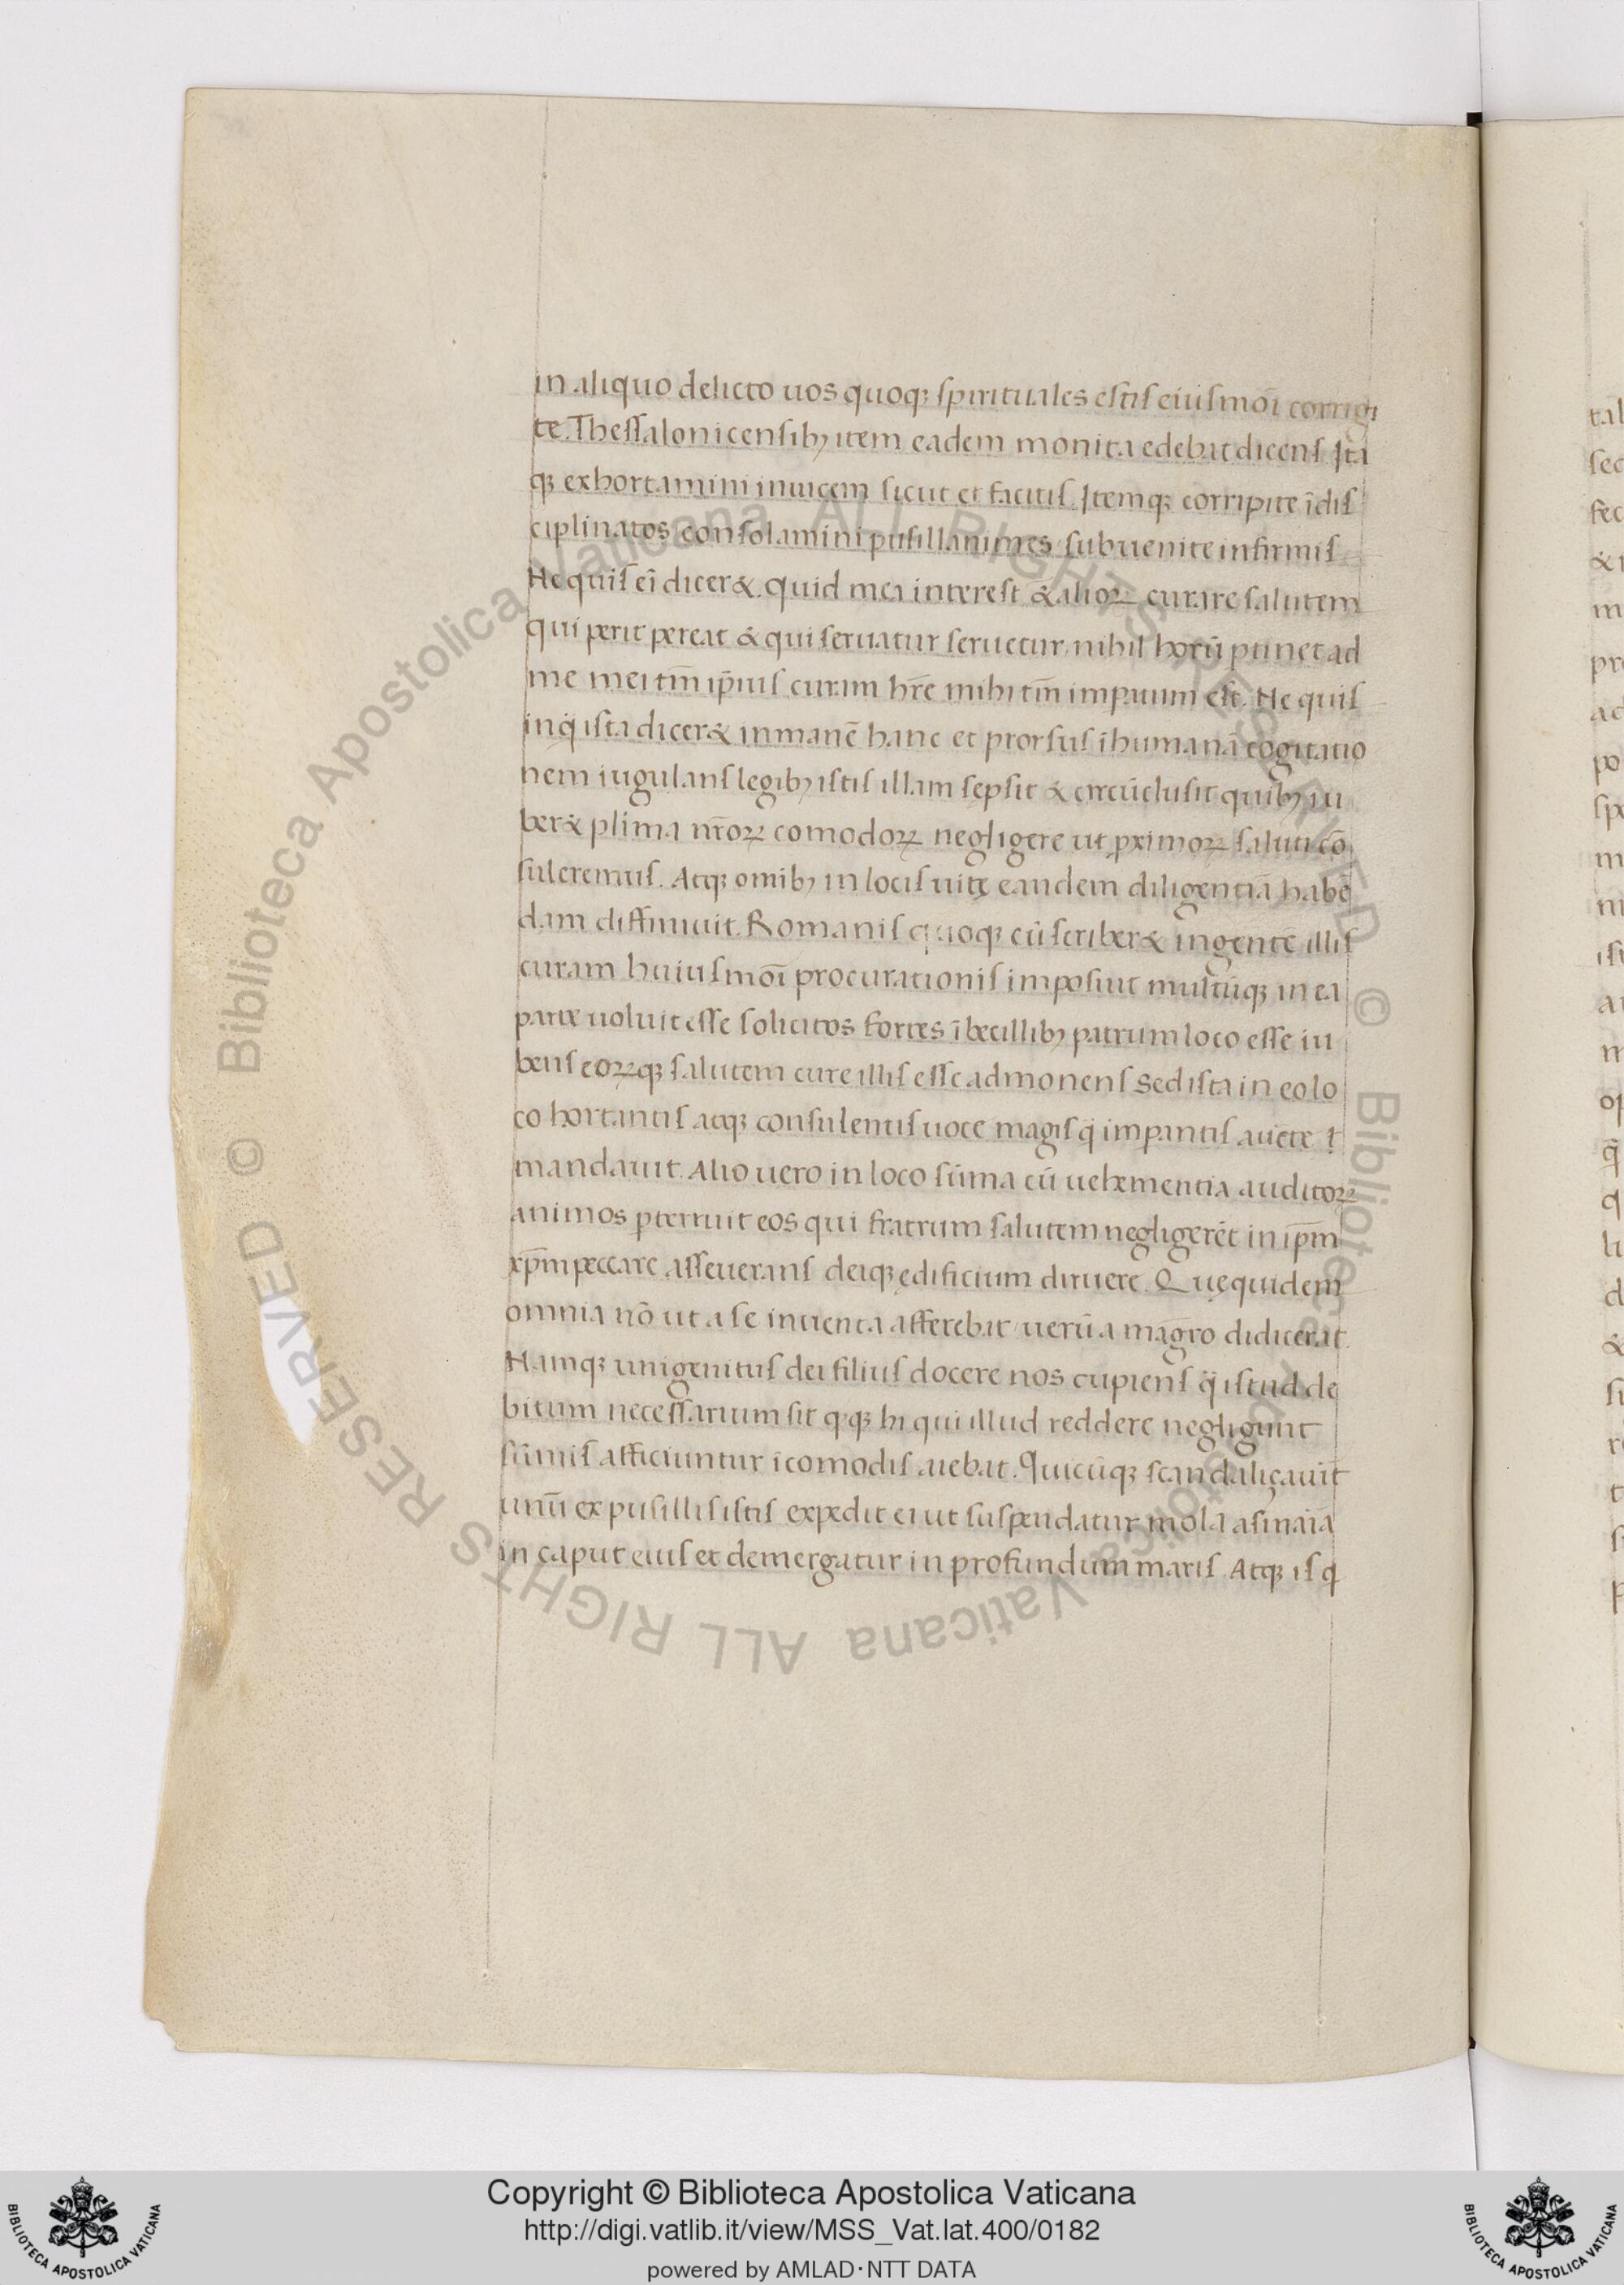 in aliquo delicto uos quoqꝫ spirituales estis eiusmōi corrigi
te. Thessalonicensibꝫ item eadem monita edebat dicens. Ita
qꝫ exhortamini inuicem sicut et facitis. Itemqꝫ corripite īdis
ciplinatos consolamini pusillanimes subuenite infirmis
Ne quis ei dicer&. quid mea interest & alioꝝ curare salutem
qui perit pereat & qui seruatur seruetur, nihil horū ꝑtinet ad
me mei tm̄ ip̄ius curam hr̄e mihi tm̄ imꝑatum est. Ne quis
inq̄ ista dicer& inmanē hanc et prorsus īhumanā cogitatio
nem iugulans legibꝫ istis illam sepsit & circūclusit quibꝫ iu
ber& plīma nr̄oꝝ comodoꝝ negligere ut ꝓximoꝝ saluti cō
suleremus. Atqꝫ omībꝫ in locis uitę eandem diligentiā habē
dam diffiniuit. Romanis quoqꝫ cū scriber& ingentē illis
curam huiusmōi procurationis imposuit multūqꝫ in ea
parte uoluit esse solicitos fortes ībecillibꝫ patrum loco esse iu
bens eoꝝqꝫ salutem cure illis esse admonens sed ista in eo lo
co hortantis atqꝫ consulentis uoce magis q̄ imꝑantis
mandauit. Alio uero in loco sūma cū uehementia auditoꝝ
animos ꝑterruit eos qui fratrum salutem negligerēt in ip̄m
xp̄m peccare asseuerans deiqꝫ ędificium diruere. Quęquidem
omnia nō ut a se inuenta afferebat uerū a magr̄o didicerat.
Namqꝫ unigenitus dei filius docere nos cupiens q̄ istud de
bitum necessarium sit qꝫqꝫ hi qui illud reddere negligunt
sūmis afficiuntur īcomodis aiebat. Quicūqꝫ scandaliçauit
unū ex pusillis istis expedit ei ut suspendatur mola asinaia
in caput eius et demergatur in profundum maris. Atqꝫ is q
Copyright © Biblioteca Apostolica Vaticana
http://digi.vatlib.it/view/MSS_Vat.lat.400/0182
powered by AMLAD·NTT DATA